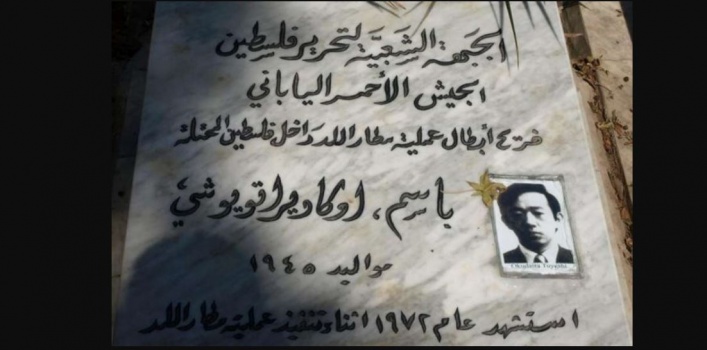 الجبهة الشعبية لتحرير فلسطين
الجيش الأحمر الياباني
ضريح أبطال عملية مطار اللد داخل فلسطين المحتلة
باسم، اوكاديرا قويوشي
مواليد ١٩٤٥
استشهد عام ١٩٧٢ اثناء تنفيذ عملية مطار اللد